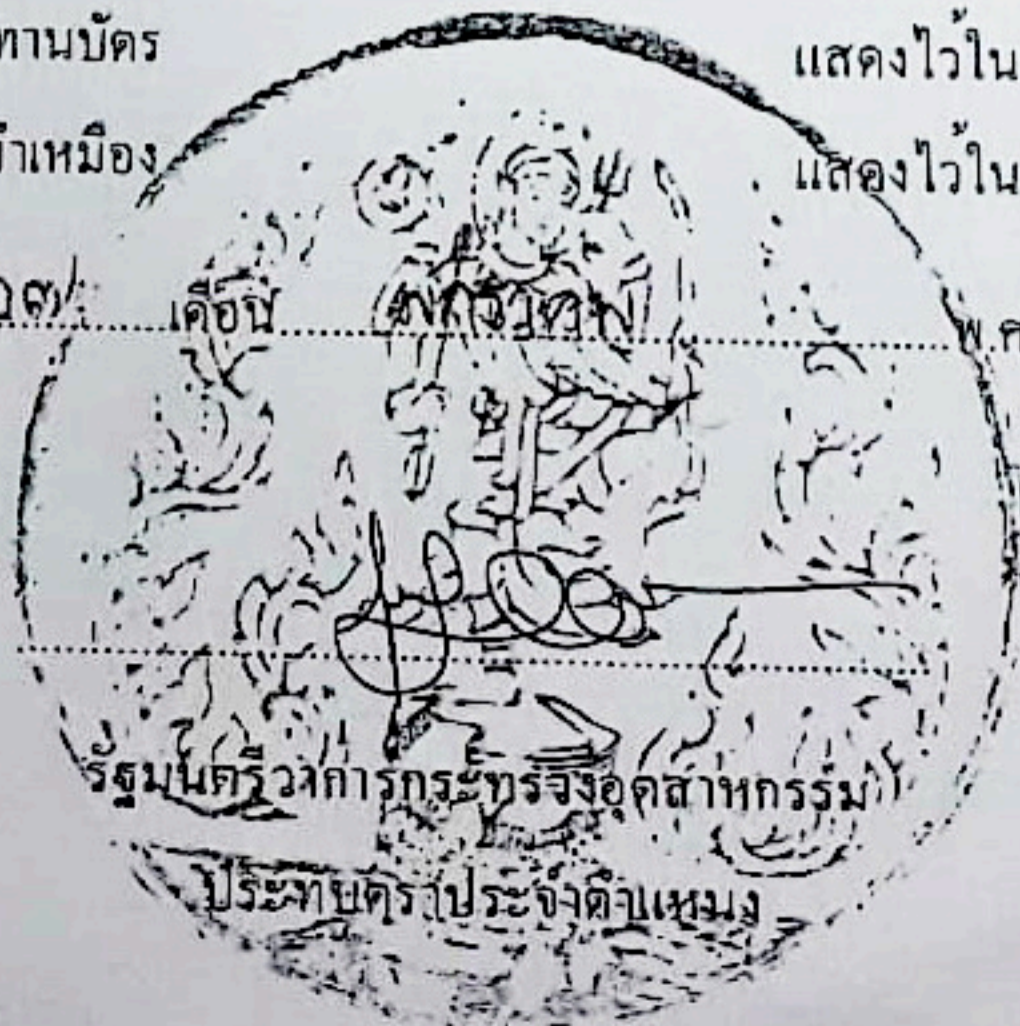 ทานบัตร แสดงไว้ใน
ทำเหมือง แสดงไว้ใน
๓ เดือน มกราคม พ.ศ
รัฐมนตรีว่าการกระทรวงอุตสาหกรรม
ประทับตราประจำตำแหน่ง